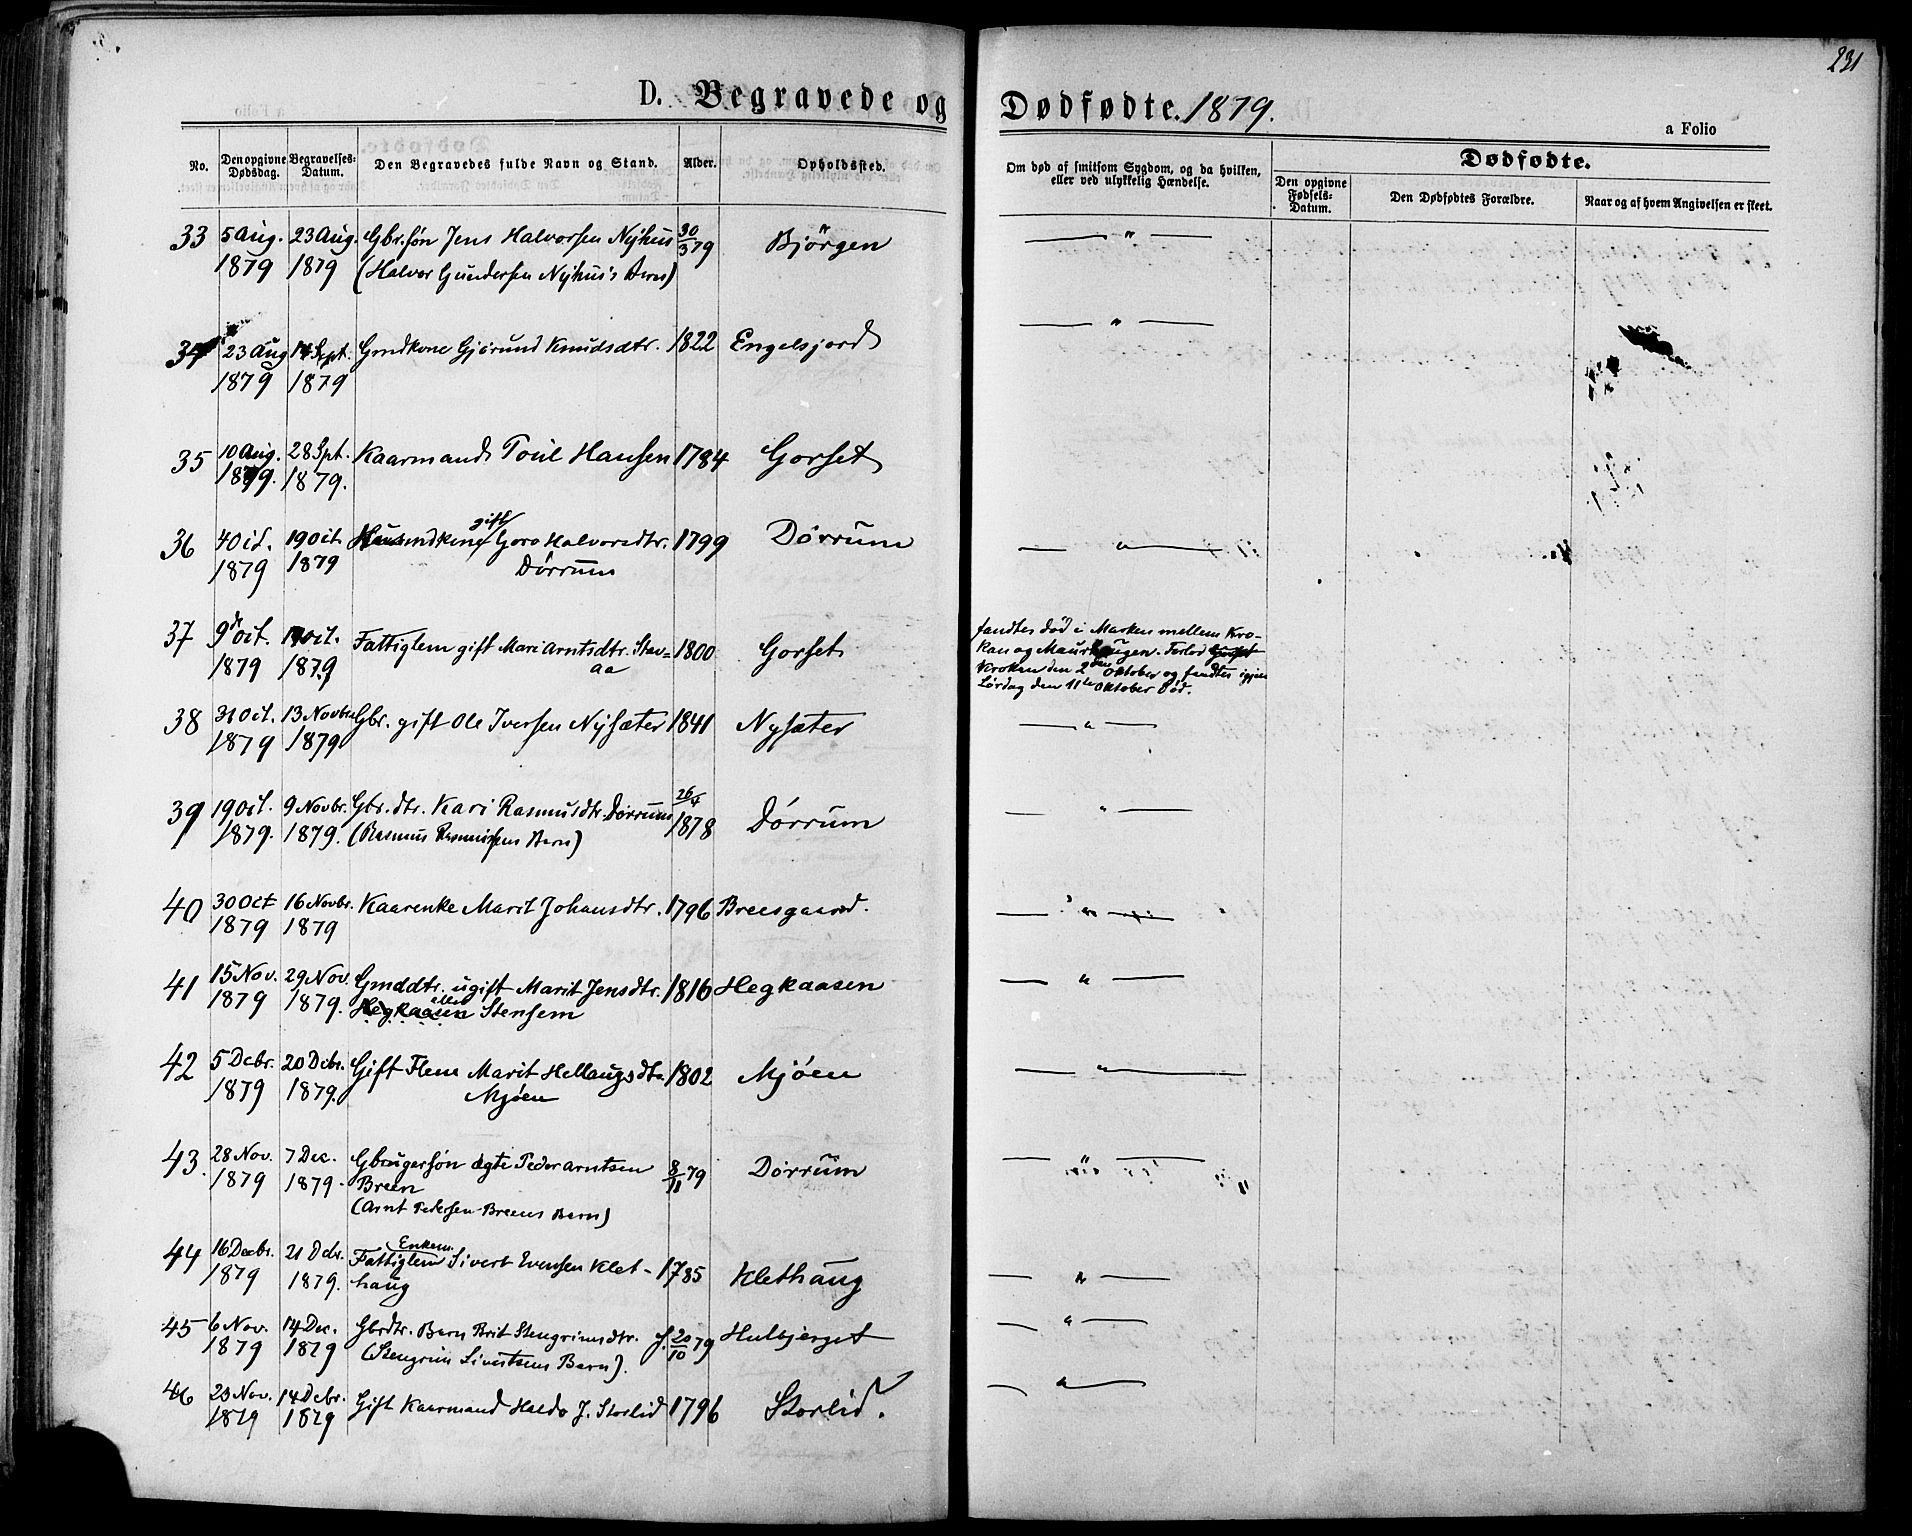 231
D. Begravede og Dødfødte. 1879.
a Folio
No.
Den opgivne Dødsdag.
Begravelses-Datum.
Den Begravedes fulde Navn og Stand.
Alder.
Opholdssted.
Om død af smitsom Sygdom, og da hvilken,
eller ved ulykkelig Hændelse.
Dødfødte.
Den opgivne Fødsels-Datum.
Den Dødfødtes Forældre.
Naar og af hvem Angivelsen er skeet.
33 5 Aug. 23 Aug. Gbr.søn Jens Halvorsen Nyhus 30/3 79 Bjørgen — " —
1879 1879 (Halvor Gundersen Nyhus's Barn)
34 23 Aug 14 Sept. Gmdkone Gjørund Knudsdtr. 1822 Engelsjord — " —
1879 1879
35 10 Aug. 28 Spt. Kaarmand Poul Hansen 1784 Gorset
1879. 1879.
36 4 Oct. 19 Oct. Husmdkone gift Goro Halvorsdtr. 1799 Dørrum — " —
1879 1879 Dørrum
37 9de Oct. 19 oct. Fattiglem gift Mari Arntsdtr. Stav= 1800 Gorset
1879 1879 aa
fandtes død i Marken mellem Kro-
kan og Maurhaugen. Forlod Gorset
Kroken den 2den Oktober og fandtes igjen
Lørdag den 11te Oktober død.
38 31 Oct. 13 Novbr Gbr. gift Ole Iversen Nysæter 1841 Nysæter — " —
1879 1879
39 19 Oct. 9 Novbr. Gbr.dtr. Kari Rasmusdtr. Dørrum 26/4 1878 Dørrum — " —
1879. 1879. (Rasmus Rasmussens Barn)
40 30 Oct 16 Novbr. Kaarenke Marit Johansdtr. 1796 Breesgaard. — " —
1879 1879
41 15 Nov. 29 Nov. Gmddtr. ugift Marit Jensdtr. 1816 Hegkaasen — " —
1879 1879. Hegkaasen eller Stensem
42 5 Debr. 20 Debr. Gift Flem Marit Hellaugsdtr 1802 Mjøen — " —
1879 1879. Mjøen
43. 28 Nov. 7 Dec. Gbrugersøn ægte Peder Arntsen 8/11 79 Dørrum — " —
1879 1879. Breen
(Arnt Pedersen Breens Barn)
44 16 Decbr. 21 Debr. Fattiglem Enkem. Sivert Evensen Klet- 1785 Klethaug — " —
1879 1879. haug
45 6 Nov. 14 Dec. Gbrdtr. Barn Brit Stengrimsdtr. f. 20/10 79 Hulbjerget — " —
1879 1879 (Stengrim Sivertsens Barn).
46 23 Nov. 14 Debr. Gift Kaarmand Haldo J. Storlid 1796 Storlid. — " —
1879 1879